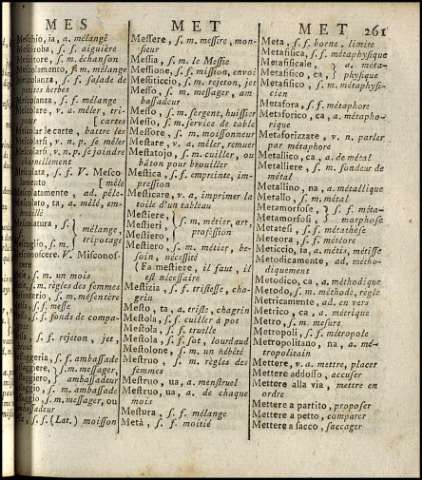 MES
MET
MET 261
Meschio, ia, a. mélangé
s. f. aiguière
s. m. échanson
s. m. mélange
s. f. salade de
herbes
s. f. mélange
v. a. mêler, tri-
[carter
le carte, battre les
v. n. p. se mêler
v. n. p. se joindre
charnellement
s. f. V. Mesco-
lamento [mêlé
ad. pêle-
ta, a. mêlé, em-
s. f. } mélange,
s. m. } tripotage
V. Misconos-
s. m. un mois
s. m. règles des femmes
s. m. mésentère
s. f. messe
s. f. fonds de compa-
s. f. rejeton, jet,
s. f. ambassade
s. m. messager,
ambassadeur
s. m. messager, ou
ambassadeur
s. f. (Lat.) moisson
Messere, s. m. messire, mon-
sieur
Messia, s. m. le Messie
Messione, s. f. mission, envoi
Messiticcio, s. m. rejeton, jet
Messo, s. m. messager, am-
bassadeur
Messo, s. m. sergent, huissier
Messo, s. m. service de table
Messore, s. m. moissonneur
Mestare, v. a. mêler, remuer
Mestatojo, s. m. cuiller, ou
bâton pour brouiller
Mestica, s. f. empreinte, im-
pression
Mesticare, v. a. imprimer la
toile d'un tableau
Mestiere, } s. m. métier, art,
Mestieri, } profession
Mestiero,
Mestiero, s. m. métier, be-
soin, nécessité
(Fa mestiere, il faut, il
est nécessaire
Mestizia, s. f. tristesse, cha-
grin
Mesto, ta, a. triste, chagrin
Mestola, s. f. cuiller à pot
Mestola, s. f. truelle
Mestola, s. f. sot, lourdaud
Mestolone, s. m. un hébété
Mestruo, s. m. règles des
femmes
Mestruo, ua, a. menstruel
Mestruo, ua, a. de chaque
mois
Mestura, s. f. mélange
Metà, s. f. moitié
Meta, s. f. borne, limite
Metafisica, s. f. métaphysique
Metafisicale, } a. méta-
Metafisico, ca, } physique
Metafisico, s. m. métaphysi-
cien
Metafora, s. f. métaphore
Metaforico, ca, a. métapho-
rique
Metaforizzare, v. n. parler
par métaphore
Metallico, ca, a. de métal
Metalliere, s. m. fondeur de
métal
Metallino, na, a. métallique
Metallo, s. m. métal
Metamorfose, } s. f. méta-
Metamorfosi, } morphose
Metatesi, s. f. métathèse
Meteora, s. f. météore
Meticcio, ia, a. métis, métisse
Metodicamente, ad. métho-
diquement
Metodico, ca, a. méthodique
Metodo, s. m. méthode, règle
Metricamente, ad. en vers
Metrico, ca, a. métrique
Metro, s. m. mesure
Metropoli, s. f. métropole
Metropolitano, na, a. mé-
tropolitain
Mettere, v. a. mettre, placer
Mettere addosso, accuser
Mettere alla via, mettre en
ordre
Mettere a partito, proposer
Mettere a petto, comparer
Mettere a sacco, saccager